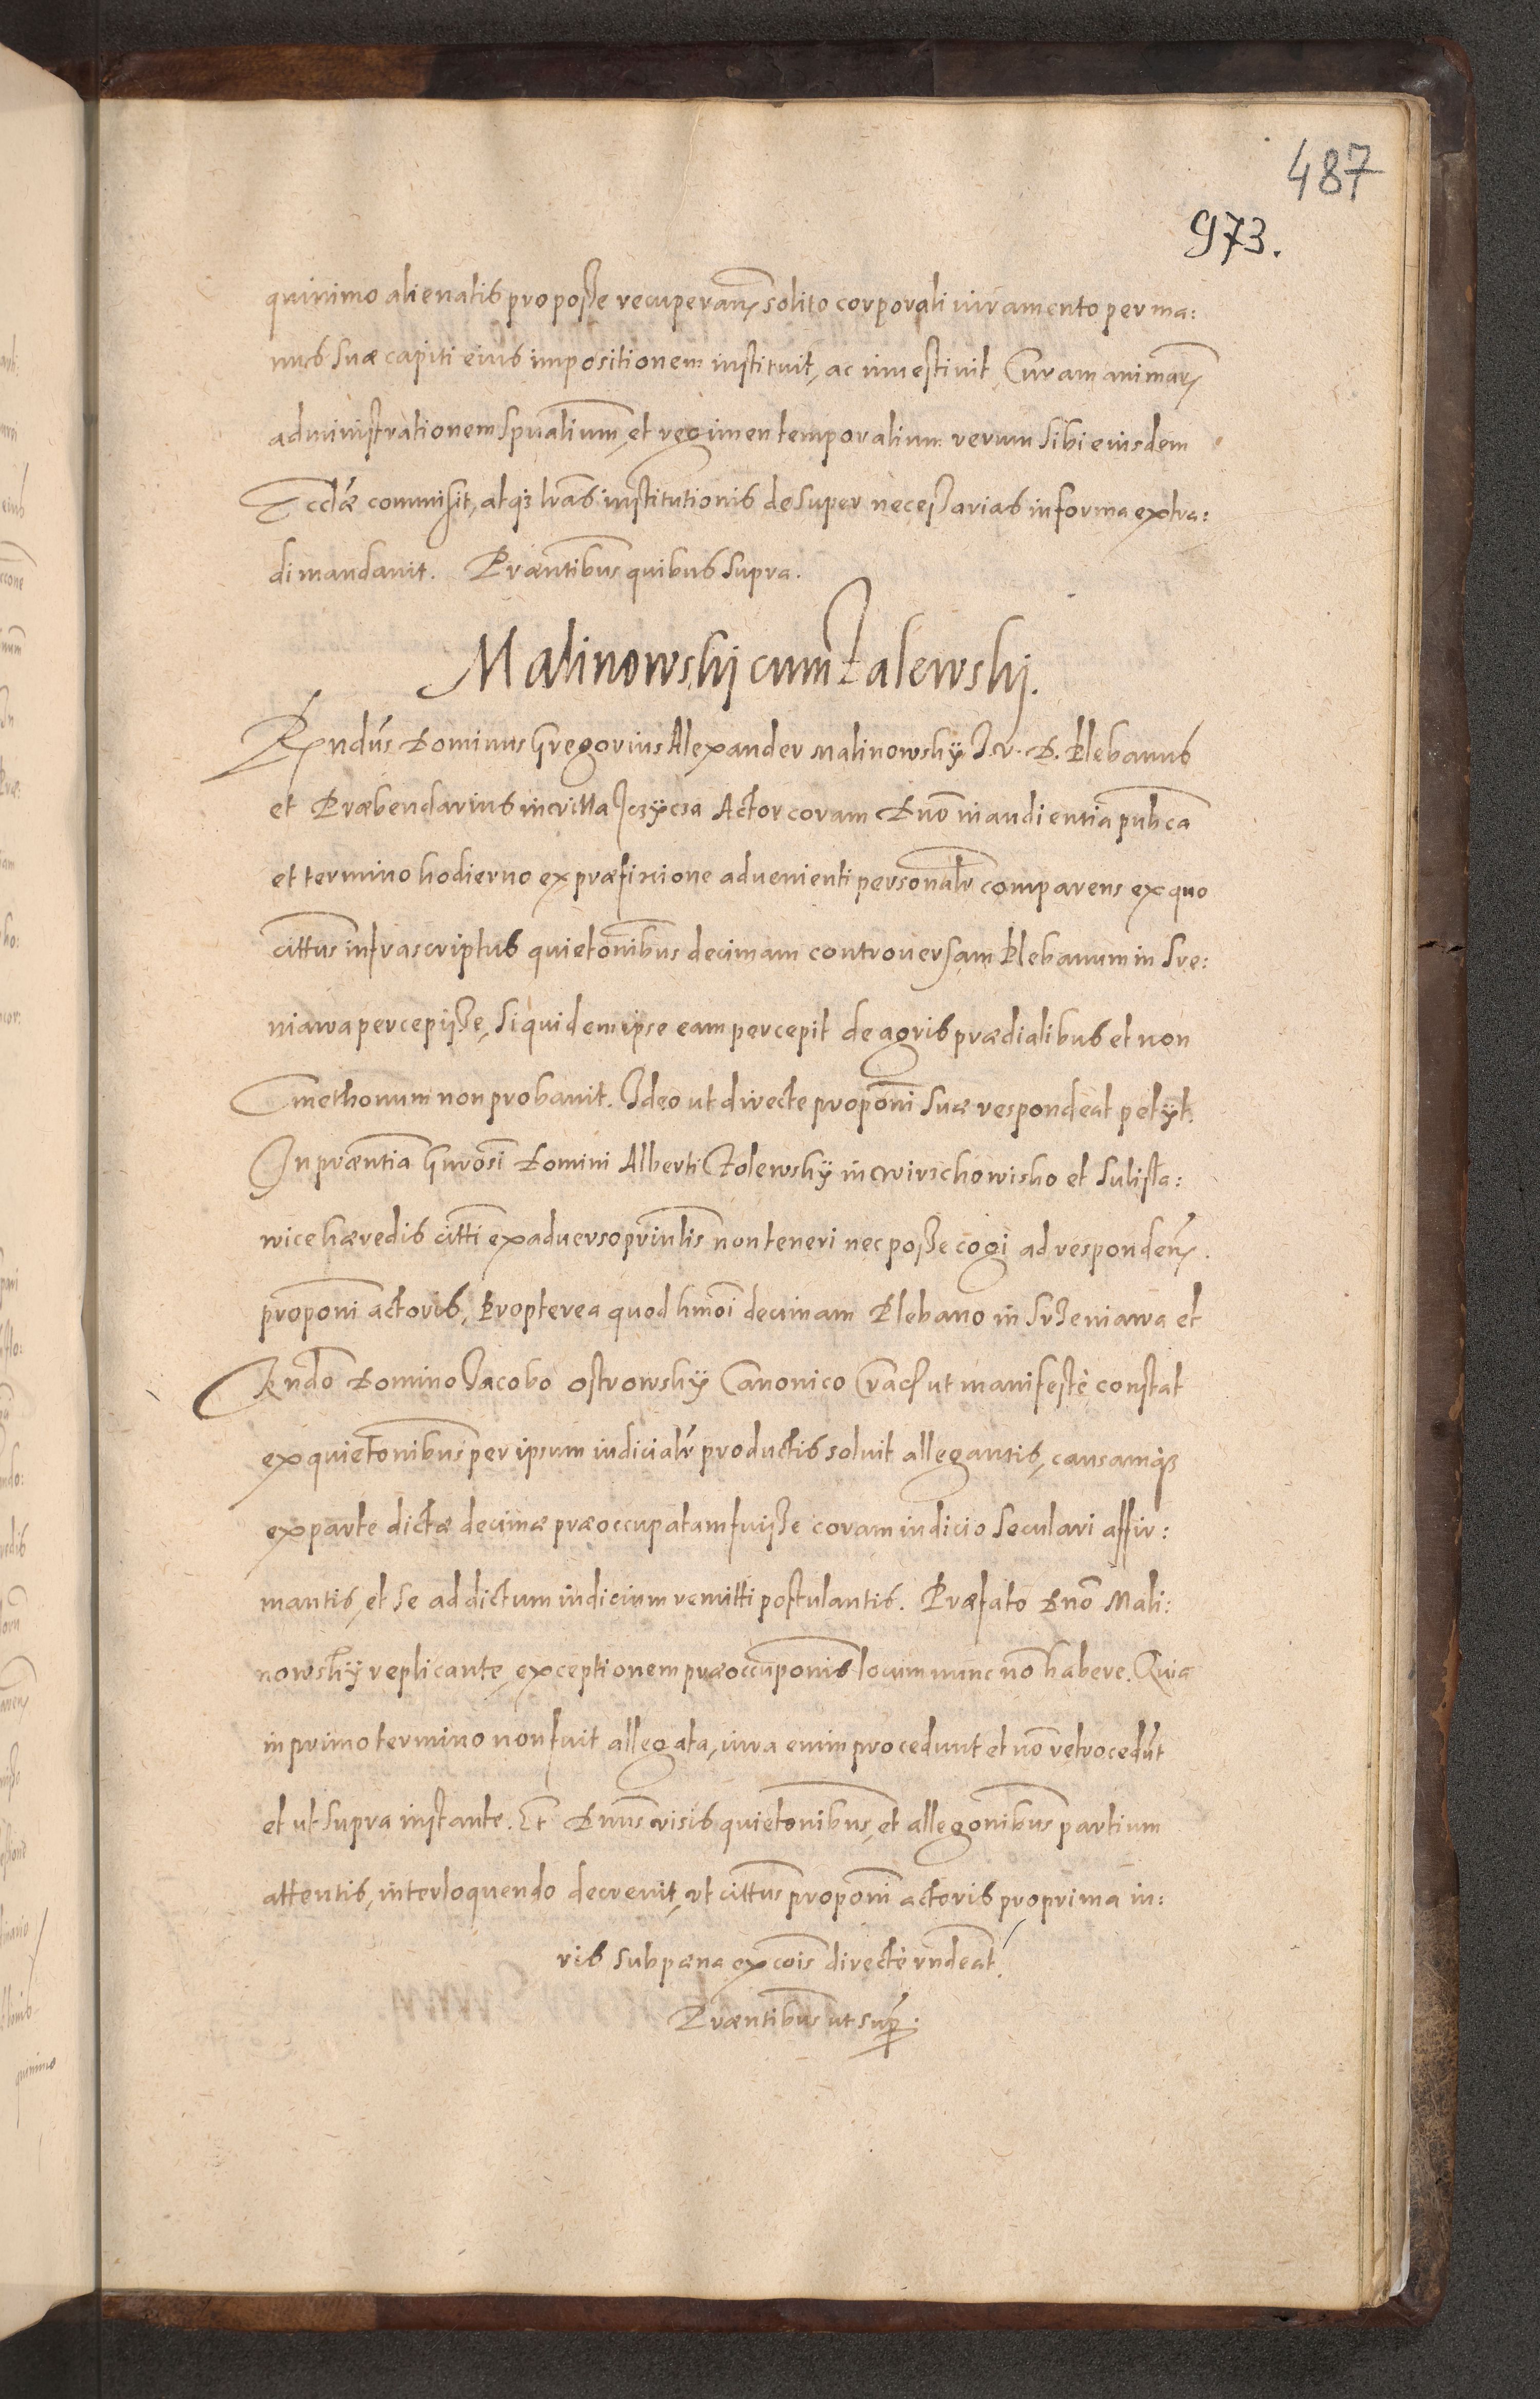 487
973.
quinimo alienatis pro posse recuperan solito corporali iuramento per ma:
nus suæ capiti eius impositionem instituit, ac inuestiuit, Curam animar
administrationem spualium, et regimen temporalium rerum sibi eiusdem
Eccliæ commisit, atq3 lras institutionis desuper necessarias in forma extra:
di mandauit. Præntibus quibus supra.
Malinowskij cum Zalewskj.
Rndus Dominus Gregorius Alexander Malinowskÿ I. V. D. Plebanus
et Præbendarius in villa Actor coram Dno in audientia publica
et termino hodierno ex præfixione aduenienti personalr comparens ex quo
cittus infrascriptus quietonibus decimam controuersam Plebanum in Sre:
niawa percepisse, siquidem ipse eam percepit de agris prædialibus et non
Cmethonum non probauit. Ideo ut directe proponi suæ respondeat petÿt.
In præntia Gnrosi Domini Alberti Zolewskÿ in et Sulista:
wice hæredis citti ex aduerso prinlis non teneri nec posse cogi ad responden.
proponi actoris, Propterea quod hmoi decimam Plebano in Srzeniawa et
Rndo Domino Jacobo Ostrowskÿ Canonico Crac ut manifestè constat
ex quietonibus per ipsum iudicialr productis soluit allegantis, causamq3
ex parte dictæ decimæ præoccupatam fuisse coram iudicio seculari affir:
mantis, et se ad dictum iudicium remitti postulantis. Præfato Dno Mali:
nowskÿ replicante, exceptionem præoccuponis locum nunc no habere. Quia
in primo termino non fuit allegata, iura enim procedunt et no retrocedut
et ut supra instante. Et Dnus visis quietonibus, et allegonibus partium
attentis, interloquendo decreuit, ut cittus proponi actoris pro prima iu:
ris sub pæna excois directè rndeat.
Præntibus ut supr.